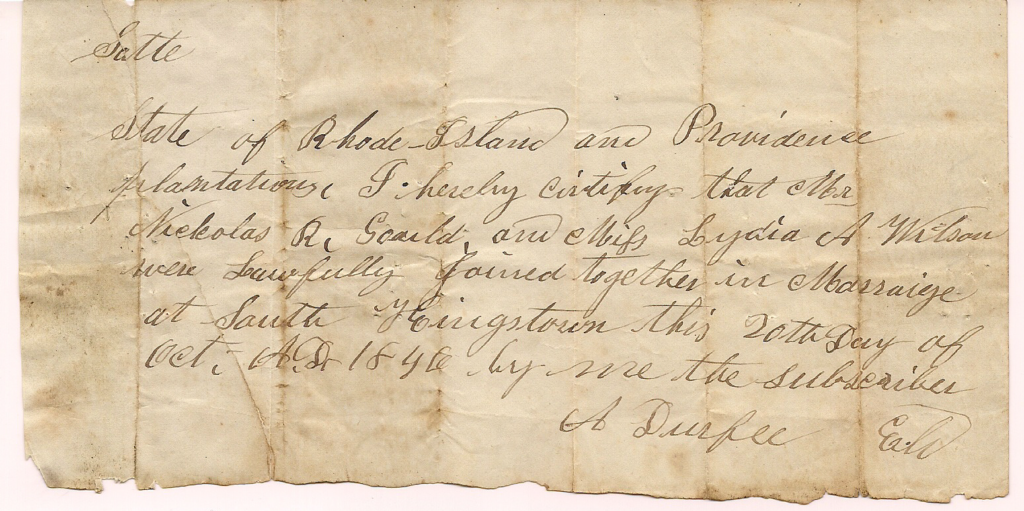 Satte
State of Rhode-Island and Providence
plantations, I hereby cirtify that Mr
Nickolas R, Gould, and Miss Lydia A Wilson
were Lawfully Joined together in Marraige
at South Kingstown this 20th Day of
Oct, A.D. 1846 by me the subscriber
A Durfee Eld